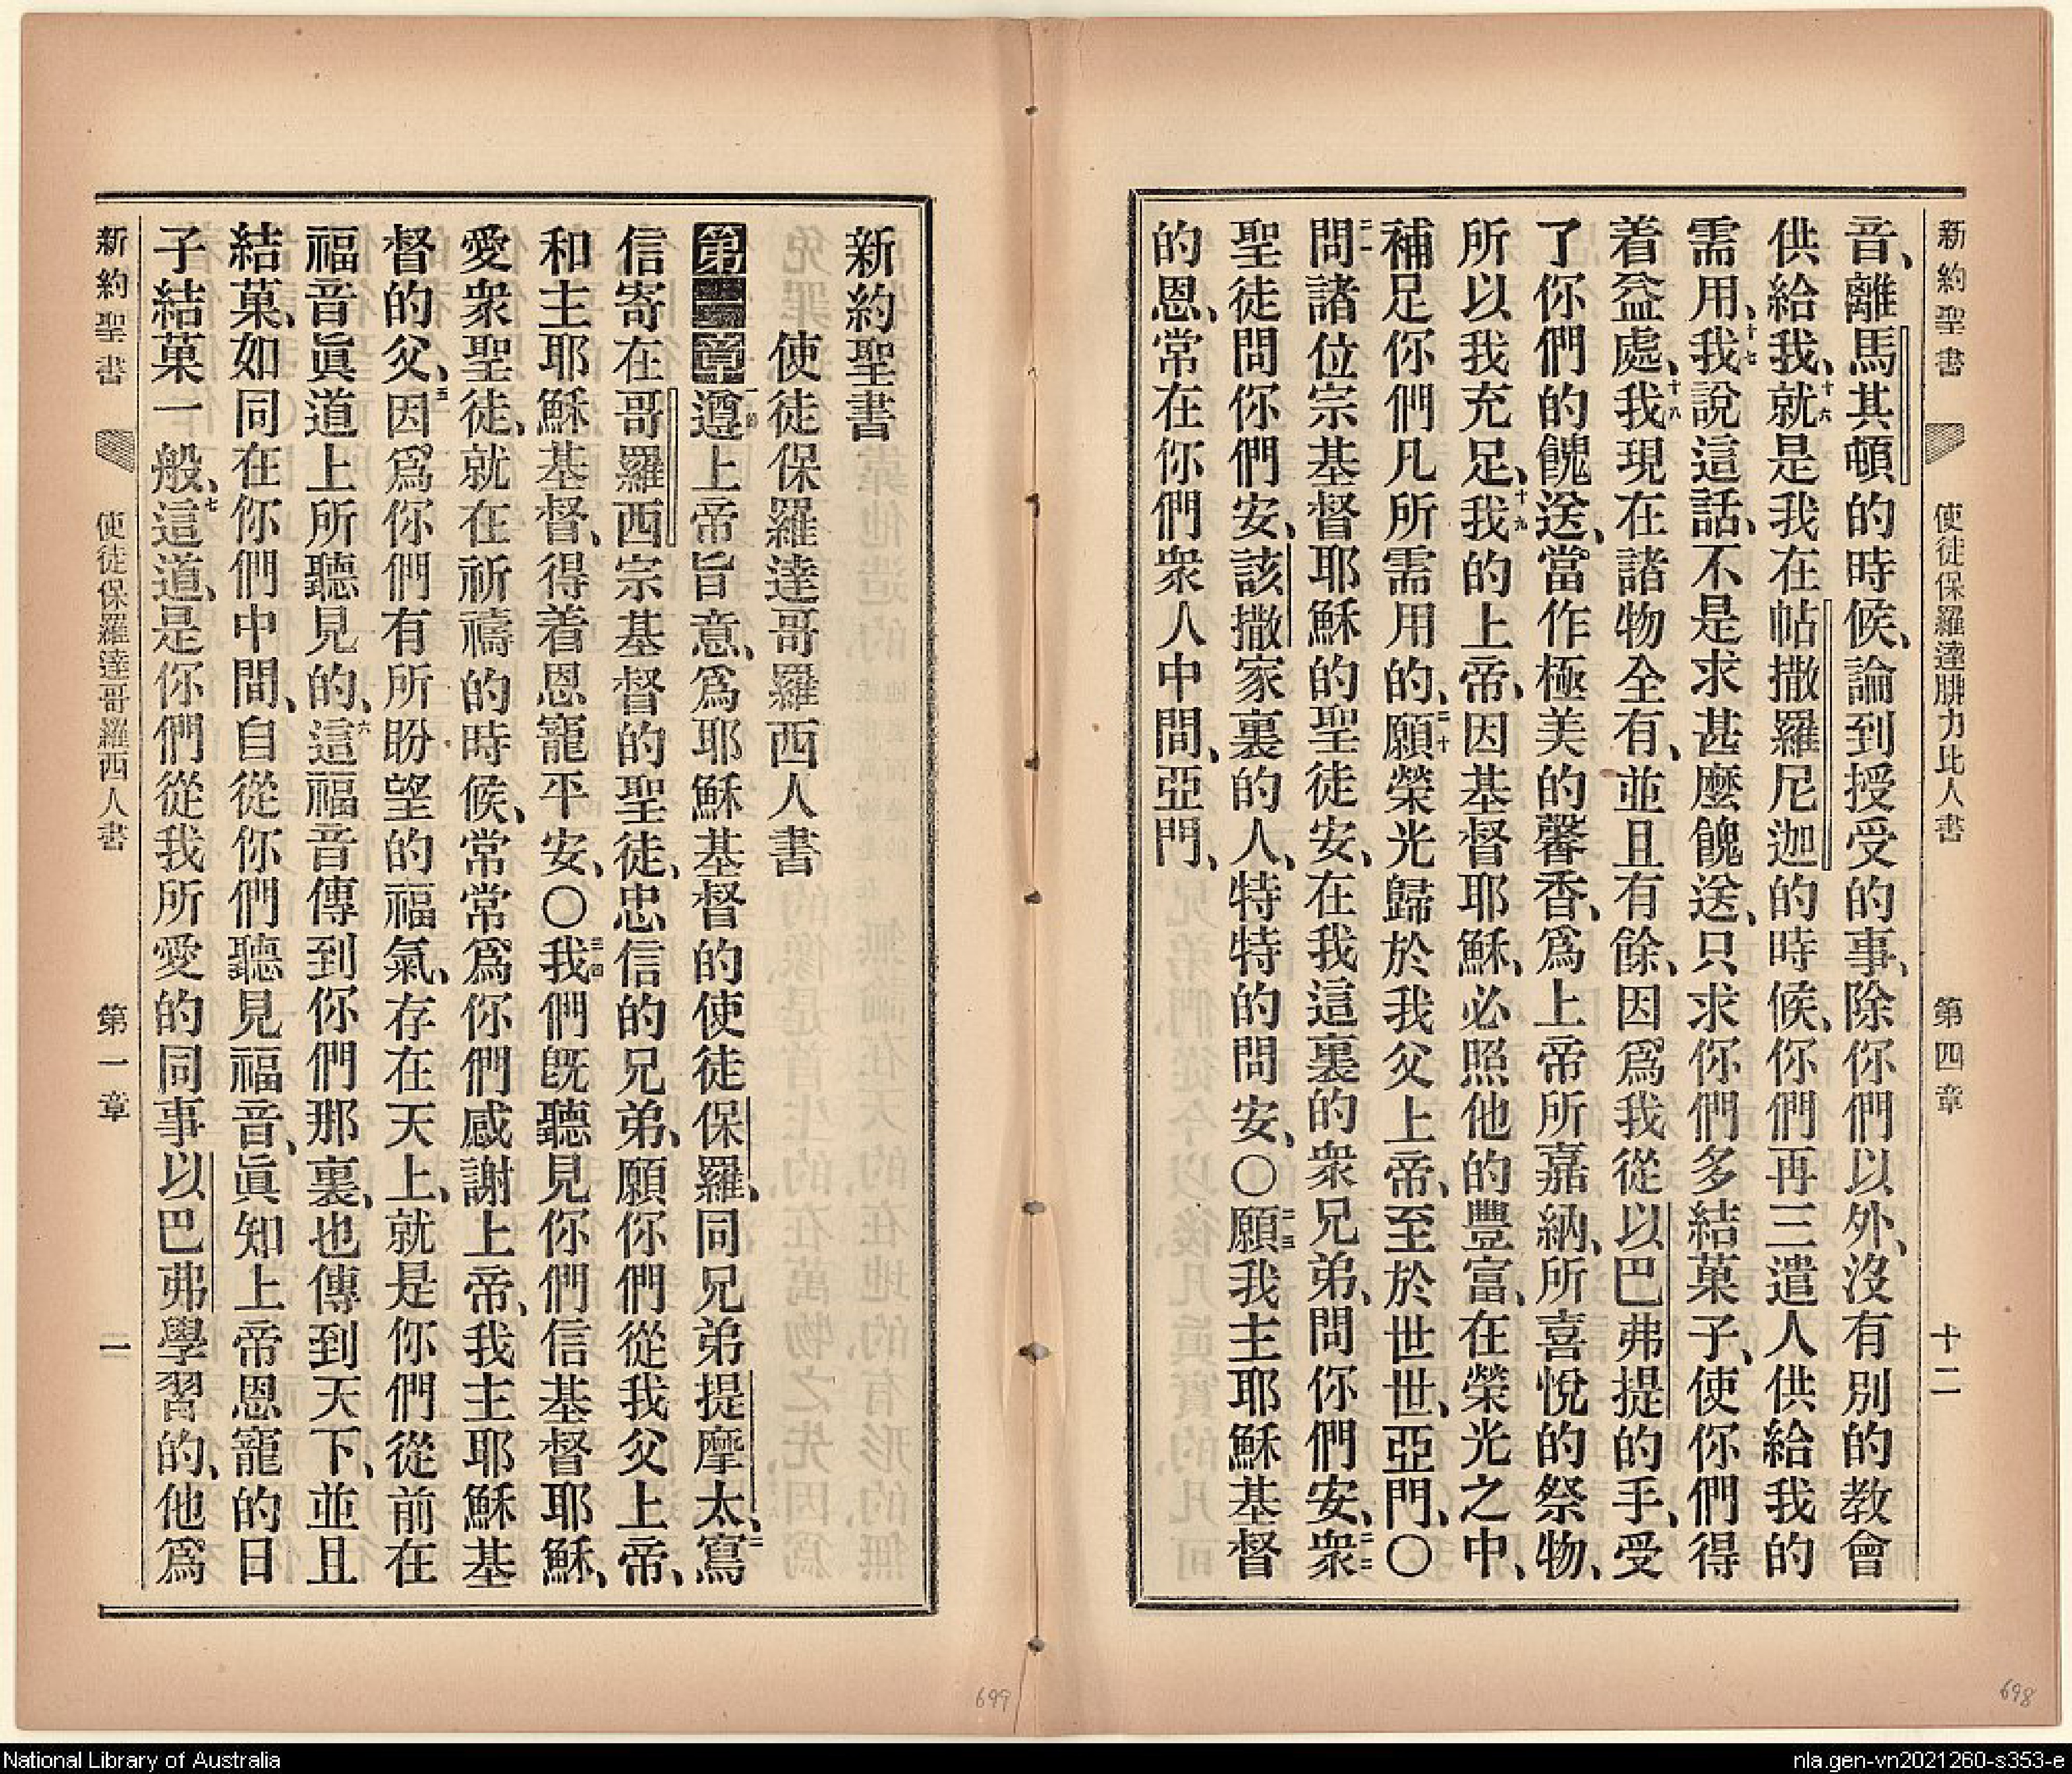 新約聖書 使徒保羅達腓力比人書 第四章 十二
音、離馬其頓的時候、論到授受的事、除你們以外、沒有別的教會
供給我、十六就是我在帖撒羅尼迦的時候、你們再三遣人供給我的
需用、十七我說這話、不是求甚麼餽送、只求你們多結菓子、使你們得
着益處、十八我現在諸物全有、並且有餘、因爲我從以巴弗提的手、受
了你們的餽送、當作極美的馨香、爲上帝所嘉納、所喜悅的祭物、
所以我充足、十九我的上帝、因基督耶穌、必照他的豐富、在榮光之中、
補足你們凡所需用的、二十願榮光歸於我父上帝、至於世世、亞門、〇
二一問諸位宗基督耶穌的聖徒安、在我這裏的衆兄弟、問你們安、二二衆
聖徒問你們安、該撒家裏的人、特特的問安、〇二三願我主耶穌基督
的恩、常在你們衆人中間、亞門、
新約聖書
使徒保羅達哥羅西人書
第一章一節遵上帝旨意、爲耶穌基督的使徒保羅、同兄弟提摩太、二寫
信寄在哥羅西宗基督的聖徒、忠信的兄弟、願你們從我父上帝、
和主耶穌基督、得着恩寵平安、〇三四我們旣聽見你們信基督耶穌、
愛衆聖徒、就在祈禱的時候、常常爲你們感謝上帝、我主耶穌基
督的父、五因爲你們有所盼望的福氣、存在天上、就是你們從前在
福音眞道上所聽見的、六這福音傳到你們那裏、也傳到天下、並且
結菓、如同在你們中間、自從你們聽見福音、眞知上帝恩寵的日
子結菓一般、七這道、是你們從我所愛的同事以巴弗學習的、他爲
新約聖書 使徒保羅達哥羅西人書 第一章 一
699
698
National Library of Australia
nla.gen-vn2021260-s353-e